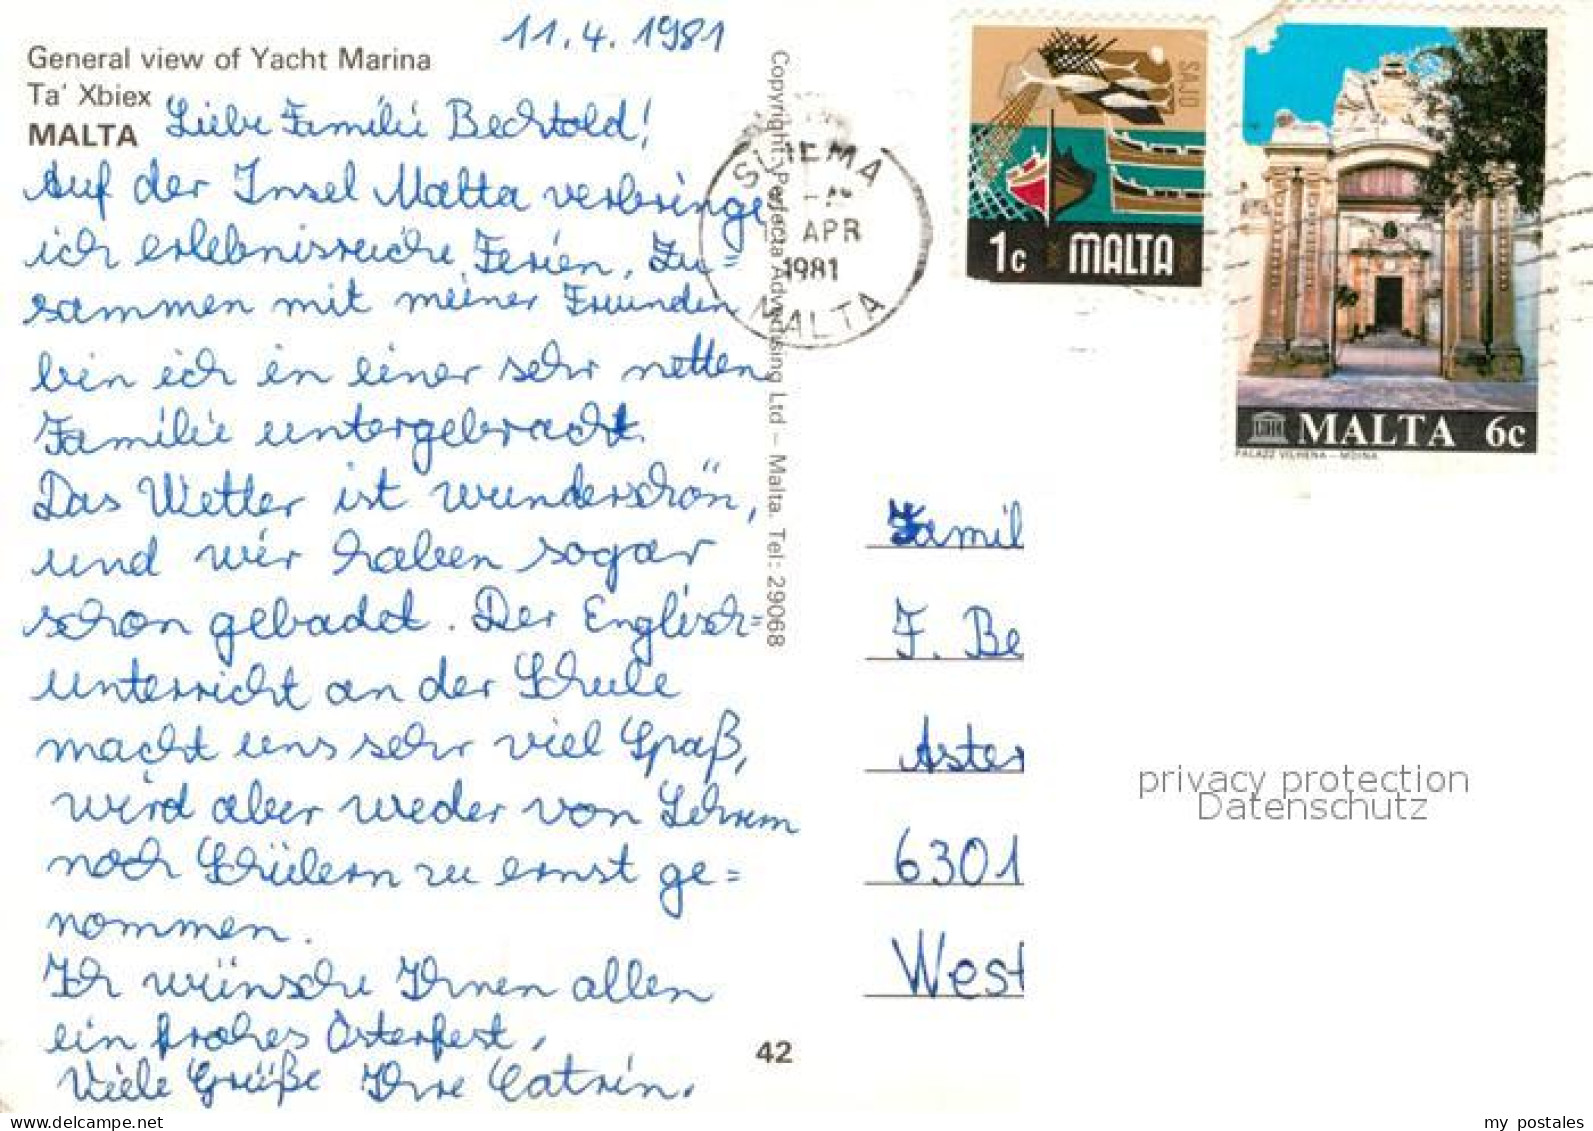 11.4.1981
General view of Yacht Marina
Ta' Xbiex
MALTA
Liebe Familie Bechtold!
Auf der Insel Malta verbringe
ich erlebnisreiche Ferien. Zu=
sammen mit meiner Freundin
bin ich in einer sehr netten
Familie untergebracht.
Das Wetter ist wunderschön,
und wir haben sogar
schon gebadet. Der Englisch=
unterricht an der Schule
macht uns sehr viel Spaß,
wird aber weder von Lehrern
noch Schülern zu ernst ge=
nommen.
Ich wünsche Ihnen allen
ein frohes Osterfest,
Viele Grüße Ihre Catrin.
Copyright: Perfecta Advertising Ltd – Malta. Tel: 29068
42
SLIEMA
APR
1981
MALTA
SAJD
1c MALTA
MALTA 6c
PALAZZ VILHENA – MDINA
Famil
F. Be
Aster
6301
West
privacy protection
Datenschutz
www.delcampe.net
my_postales